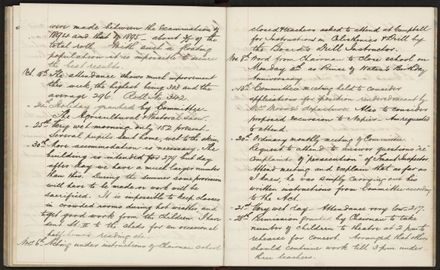 were made between the examination of
1894 and that of 1895 — about 2/5 of the
total roll. With such a floating
population it is impossible to secure
the best results.
Oct 18th The attendance shows much improvement
this week, the highest being 323 and the
average 296.1 Roll No 342.
24th Holiday granted by Committee.
The Agricultural & Pastoral Show.
25th Very wet morning, only 152 present.
Several pupils sent home, wet to the skin.
30th More accommodation is necessary. The
building is intended for 277 but day
after day we have a much larger number
than this. During the summer some classrooms
will have to be made or work will be
sacrificed. It is impossible to keep classes
in crowded rooms during hot weather and
get good work from the children. I have
sent St II to the sheds for an occasional
half hour reading lesson.
Nov 6th Acting under instructions of Chairman school
closed teachers asked to attend at Campbell
for Instructions in Calisthenics & Drill by
the Board's Drill Instructor.
Nov 8th Word from Chairman to close school on
Monday as Prince of Wales's Birthday
Anniversary.
Committee meeting held to consider
applications for position rendered vacant by
Mr. Wood's Resignation. Also to consider
proposed excursion to Napier. Am requested
to attend.
20th Ordinary monthly meeting of Committee
Request to attend to answer questions re
complaints of "prosecution" of Truant Inspector.
Attend meeting and explain that as far as
I knew, he was simply carrying out his
written instructions from Committee according
to the Act.
21st Very wet day. Attendance very low 217.
28th Permission granted by Chairman to take
number of children to theatre at 2 p.m. to
rehearse for concert. Arranged that others
should continue work till 3 p.m. under
their teachers.